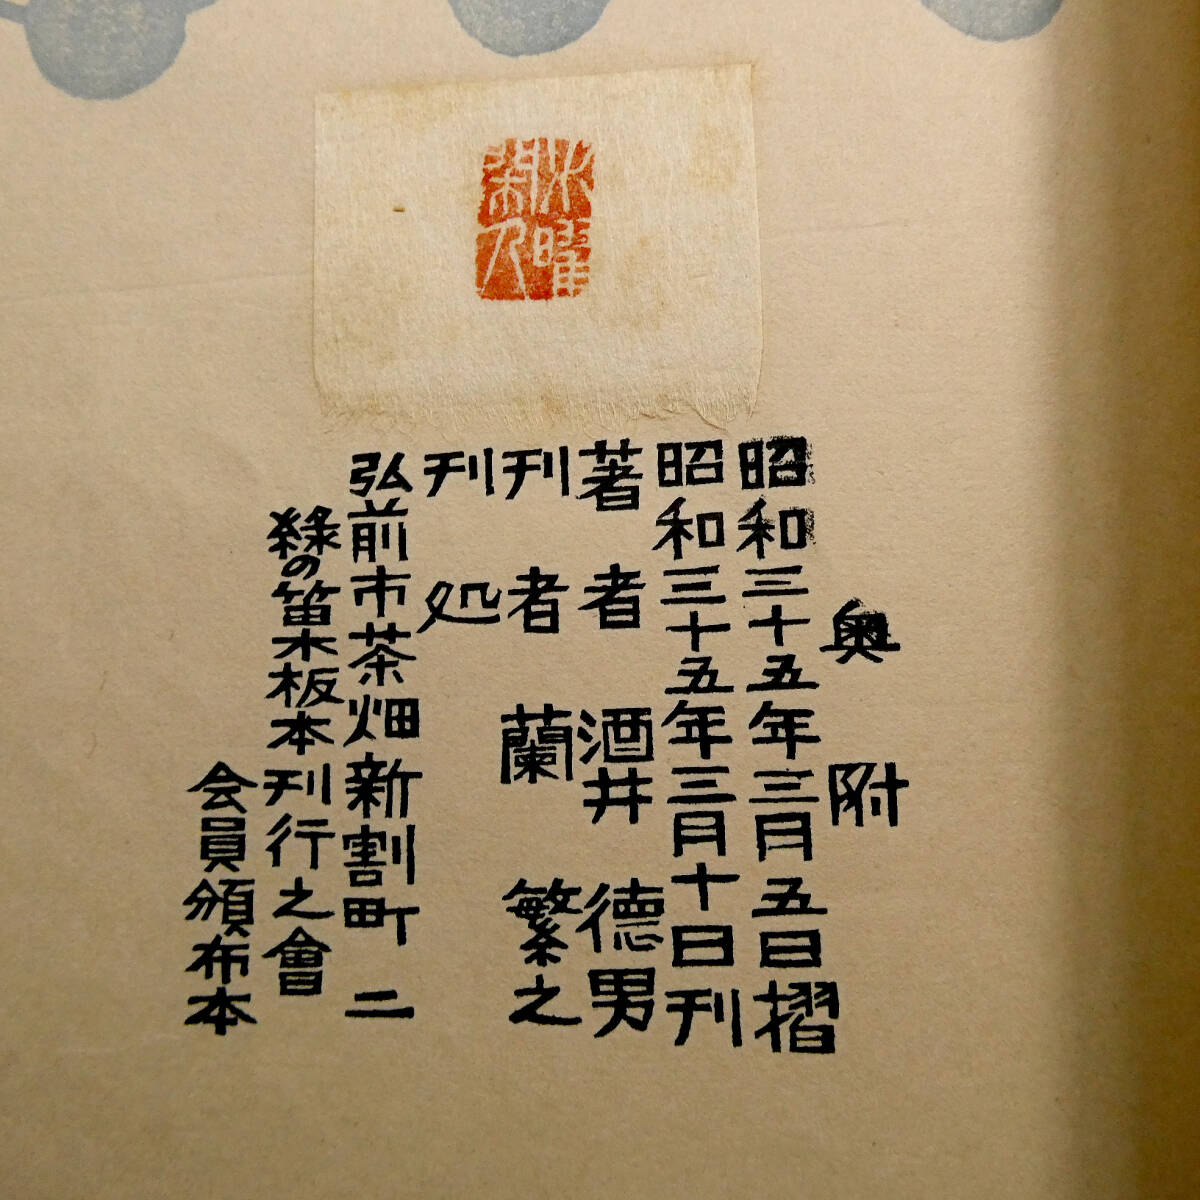 奥附
昭和三十五年三月五日摺
昭和三十五年三月十日刊
著者 酒井德男
刊者 蘭繁之
刊処
弘前市茶畑新割町二
緑の笛木板本刊行之會
会員頒布本